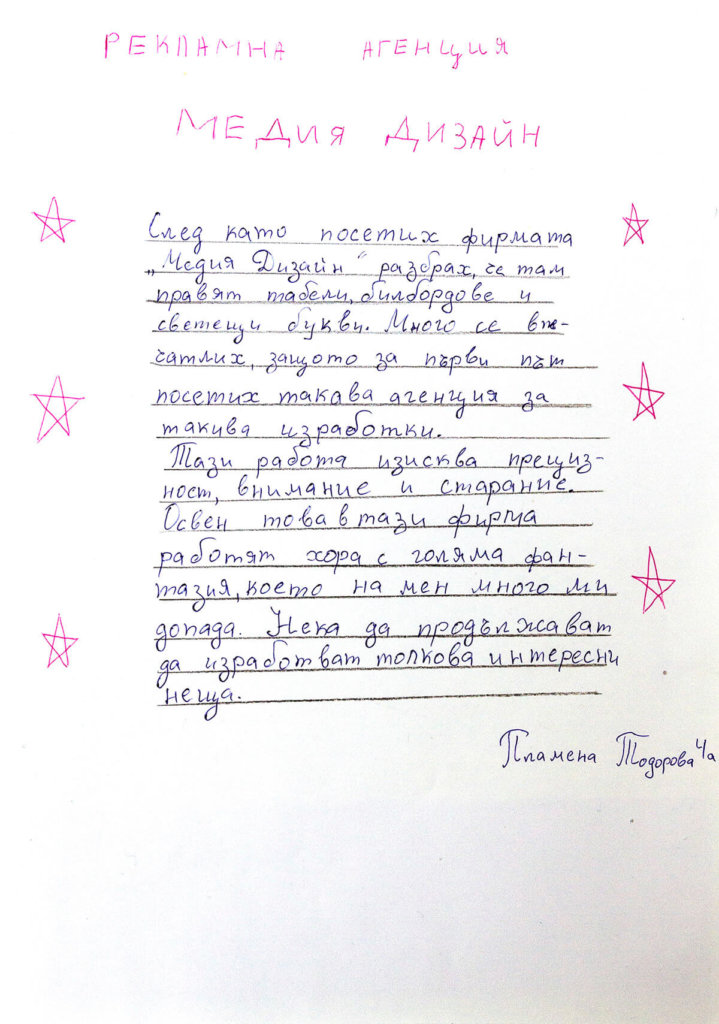 РЕКЛАМНА АГЕНЦИЯ
МЕДИЯ ДИЗАЙН
След като посетих фирмата
„Медия Дизайн“ разбрах, че там
правят табели, билбордове и
светещи букви. Много се впе-
чатлих, защото за първи път
посетих такава агенция за
такива изработки.
Тази работа изисква прециз-
ност, внимание и старание.
Освен това в тази фирма
работят хора с голяма фан-
тазия, което на мен много ми
допада. Нека да продължават
да изработват толкова интересни
неща.
Пламена Тодорова 4а